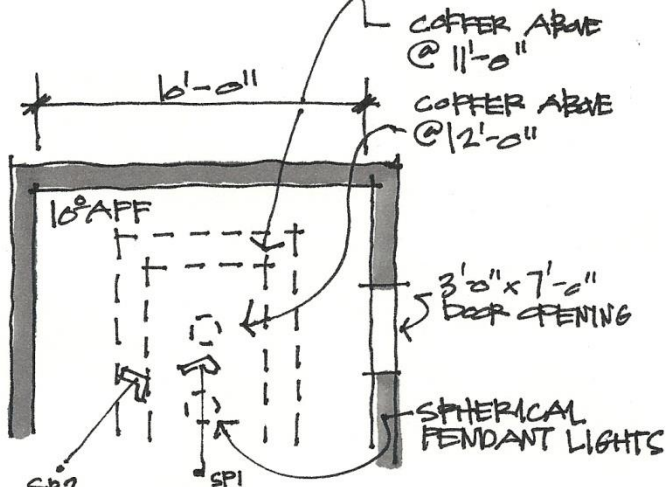 COFFER ABOVE
@ 11'-0"
10'-0"
COFFER ABOVE
@ 12'-0"
10⁰ AFF
3'0" x 7'-0"
DOOR OPENING
SPHERICAL
PENDANT LIGHTS
SP2
SP1